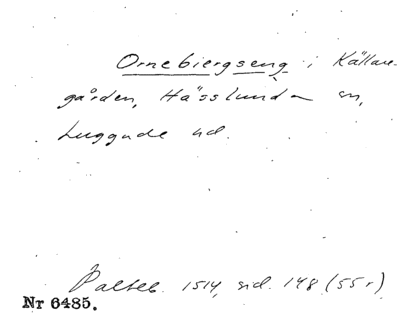 Ornebiergseng i Källare-
gården, Hässlunda sn,
Luggude hd.
Palteb. 1514, sid. 148 (55 r)
Nr 6485.